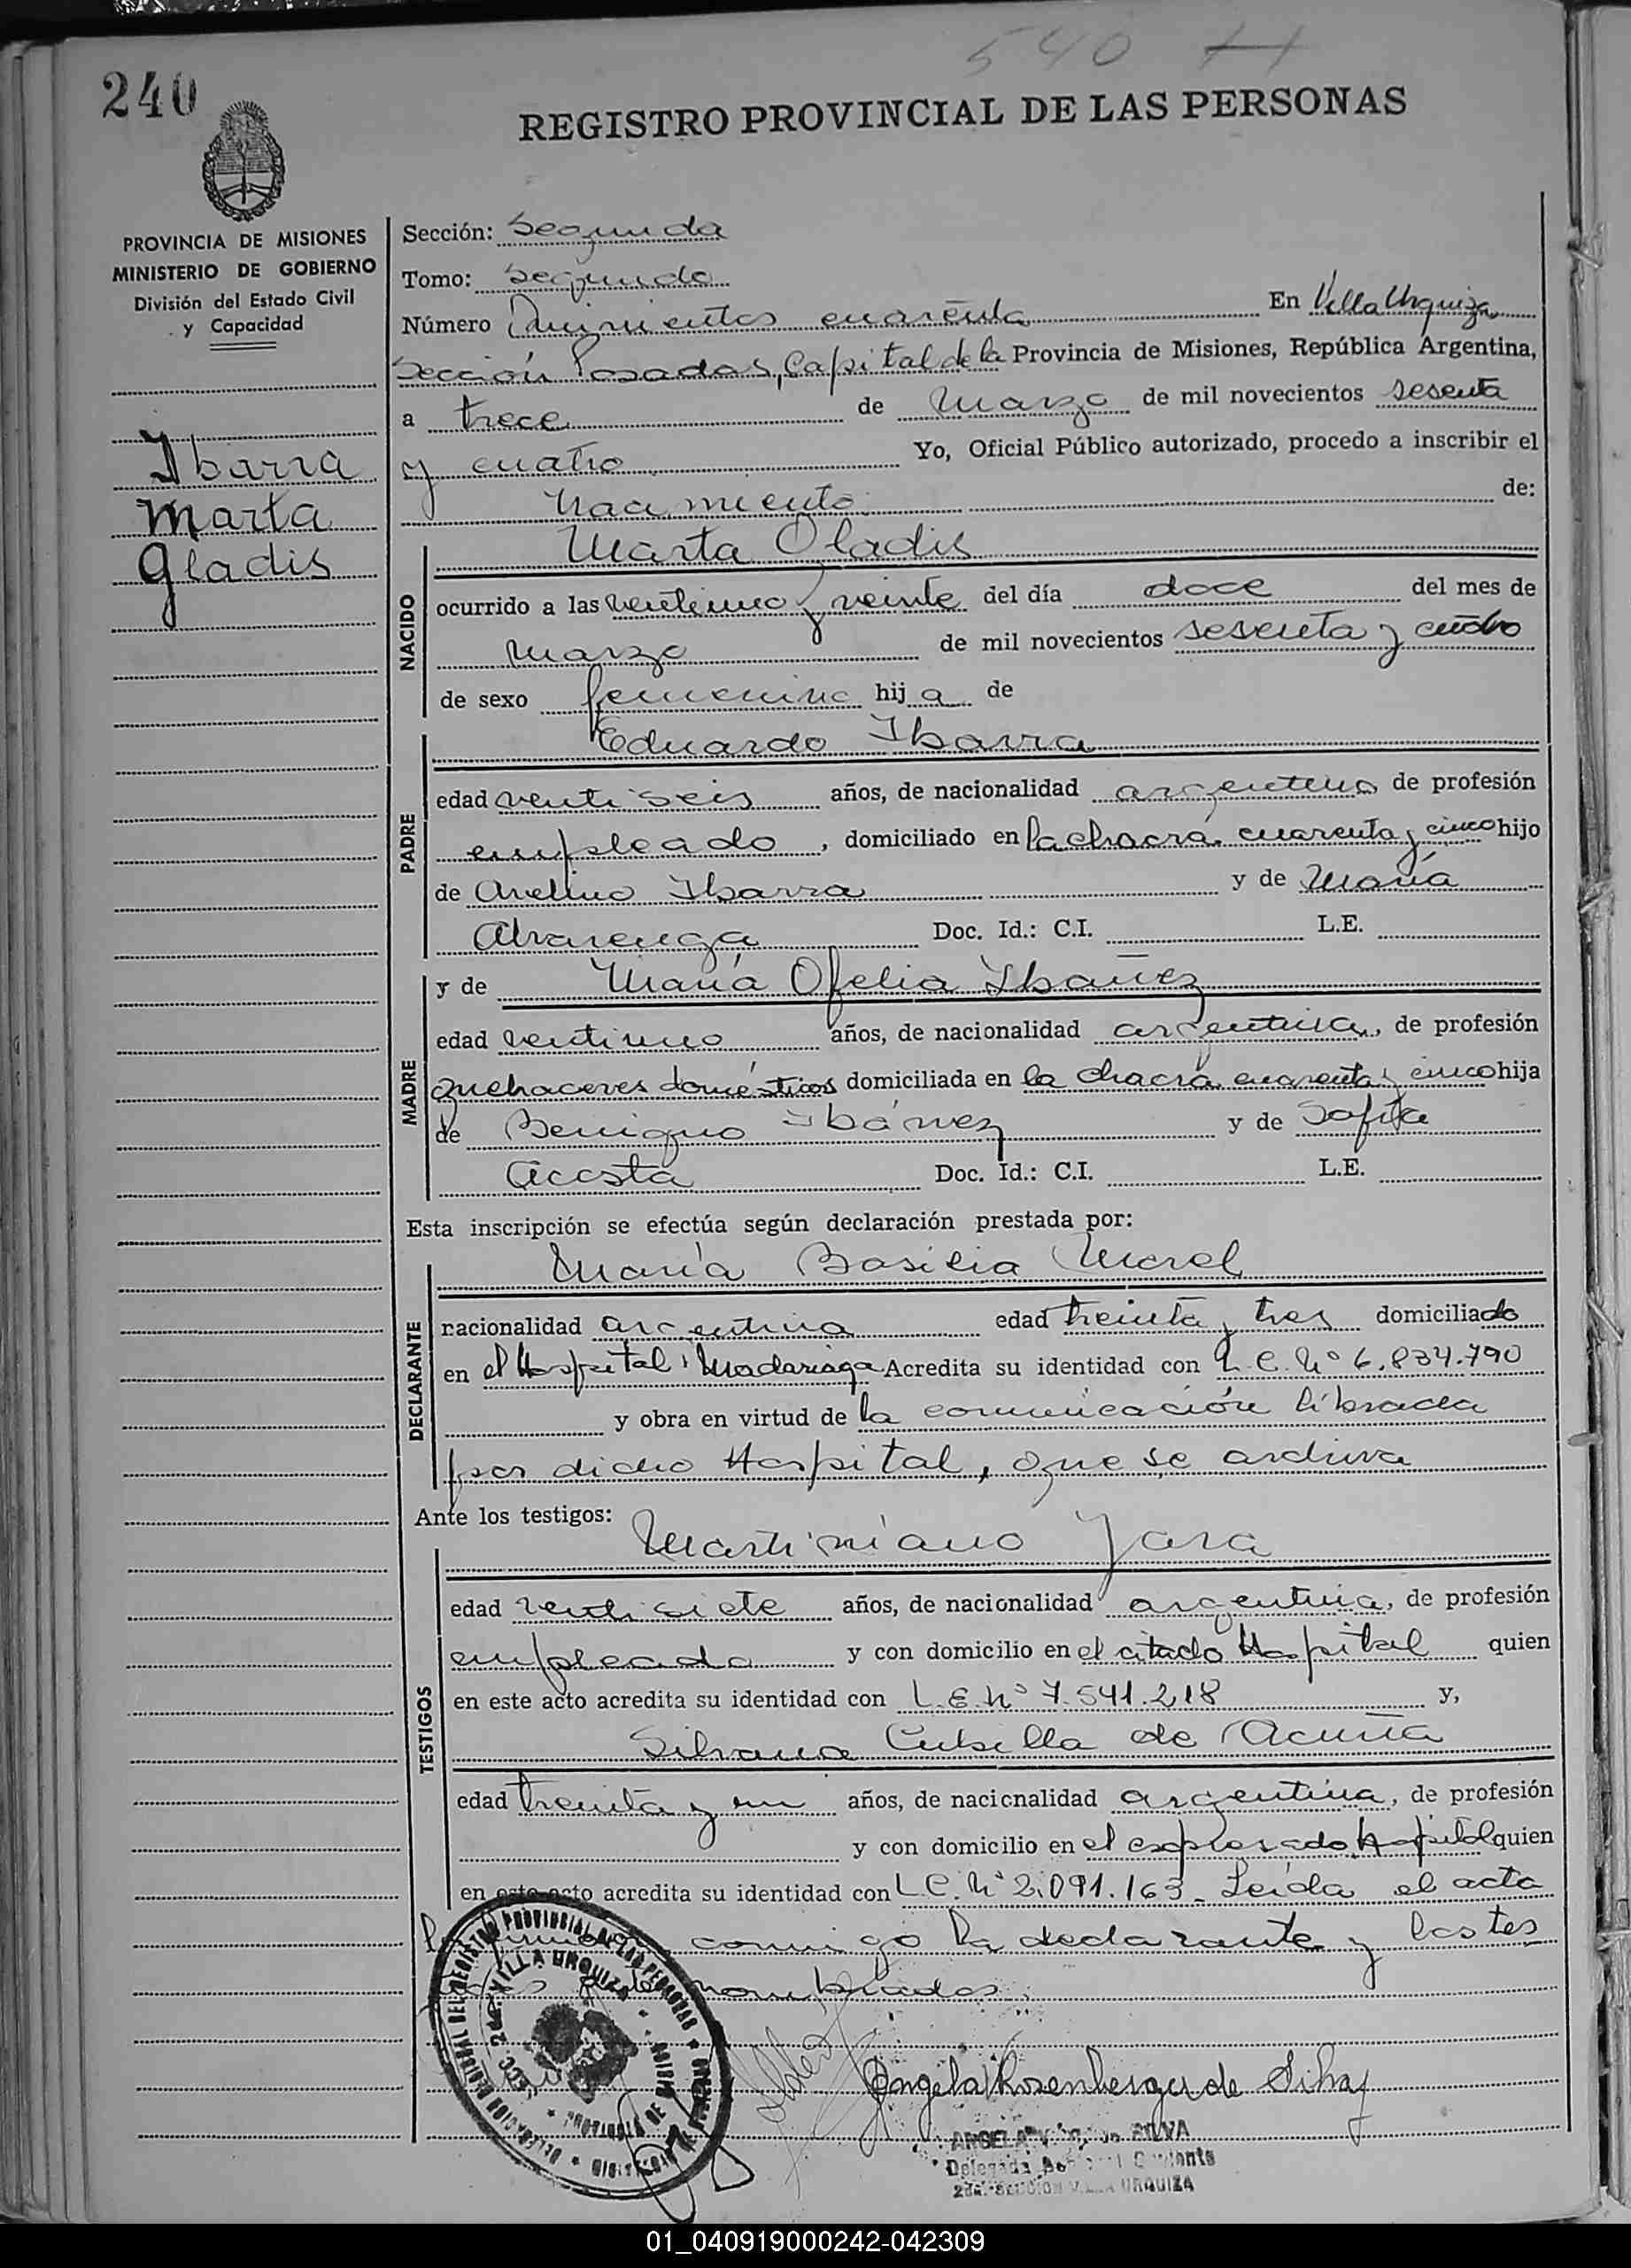 540
240
REGISTRO PROVINCIAL DE LAS PERSONAS
PROVINCIA DE MISIONES
MINISTERIO DE GOBIERNO
División del Estado Civil
y Capacidad
Ibarra
Marta
Gladis
Sección: Segunda
Tomo: Segundo
Número Quinientos cuarenta En Villa Urquiza
Sección Posadas, Capital de la Provincia de Misiones, República Argentina,
a trece de Marzo de mil novecientos sesenta
y cuatro Yo, Oficial Público autorizado, procedo a inscribir el
Nacimiento de:
NACIDO
Marta Gladis
ocurrido a las ventiuno y veinte del día doce del mes de
marzo de mil novecientos sesenta y cuatro
de sexo femenino hija de
PADRE
Eduardo Ibarra
edad ventiseis años, de nacionalidad argentino de profesión
empleado, domiciliado en la chacra cuarenta y cinco hijo
de Avelino Ibarra y de María
Alvarenga Doc. Id.: C.I. L.E.
MADRE
y de María Ofelia Ibañez
edad ventiuno años, de nacionalidad argentina, de profesión
quehaceres domésticos domiciliada en la chacra cuarenta y cinco hija
de Benigno Ibánez y de Sofía
Acosta Doc. Id.: C.I. L.E.
Esta inscripción se efectúa según declaración prestada por:
DECLARANTE
María Basilia Morel
nacionalidad argentina edad treinta y tres domiciliado
en el Hospital Madariaga Acredita su identidad con L.C. Nº 6.834.790
y obra en virtud de la comunicación librada
por dicho Hospital, que se archiva
Ante los testigos:
TESTIGOS
Martiniano Jara
edad ventisiete años, de nacionalidad argentina, de profesión
empleado y con domicilio en el citado Hospital quien
en este acto acredita su identidad con L.E. Nº 7.541.218 y,
Silvana Cubilla de Acuña
edad treinta y un años, de nacionalidad argentina, de profesión
y con domicilio en el expresado Hospital quien
en este acto acredita su identidad con L.C. Nº 2.091.163_ Leída el acta
conmigo la declarante y los tes
nombrados.
VILLA URQUIZA
Angela de Silva
SILVA
Delegada
2da. SECCION VILLA URQUIZA
01_040919000242-042309